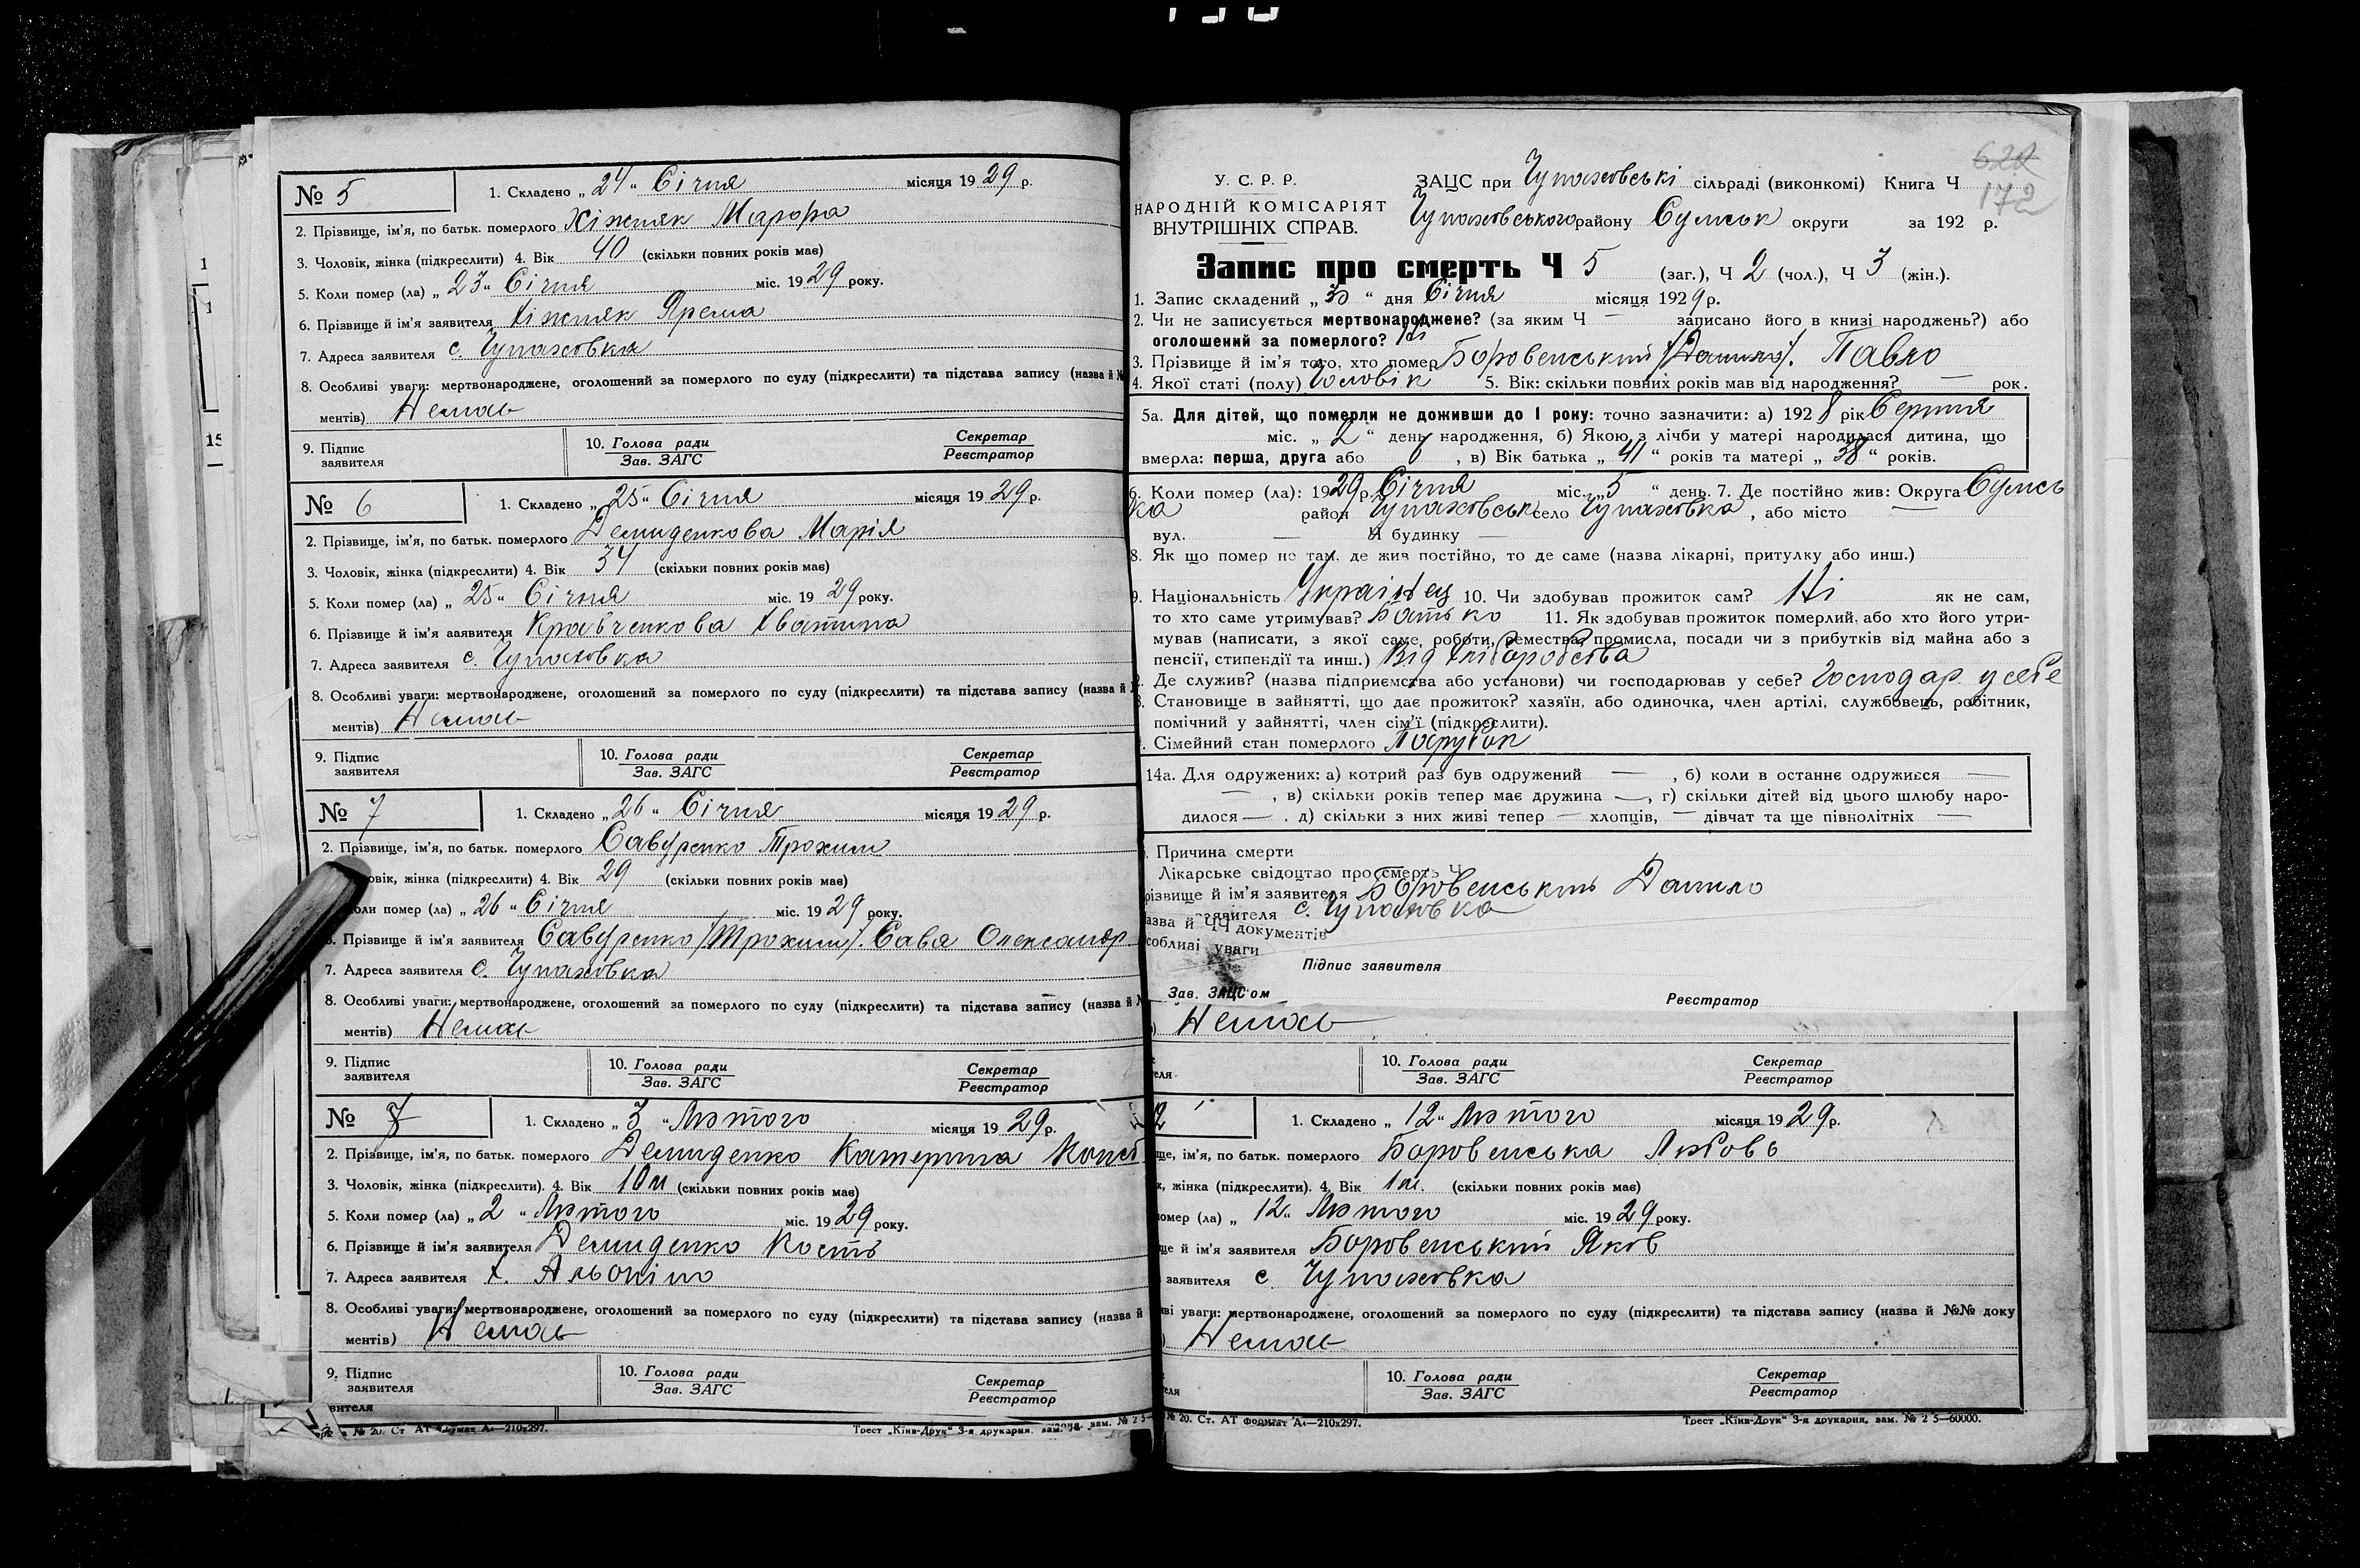 № 5
1. Складено „ 24 “ Січня місяця 1929 р.
2. Прізвище, ім'я, по батьк. померлого Хіжняк Марфа
3. Чоловік, жінка (підкреслити) 4. Вік 40 (скільки повних років має)
5. Коли помер (ла) „ 23 “ Січня міс. 1929 року.
6. Прізвище й ім'я заявителя Хіжняк Ярема
7. Адреса заявителя с. Чупаховка
8. Особливі уваги: мертвонароджене, оголошений за померлого по суду (підкреслити) та підстава запису (назва й №
ментів) Немає
9. Підпис заявителя
10. Голова ради Зав. ЗАГС
Секретар Реєстратор
№ 6
1. Складено „ 25 “ Січня місяця 1929 р.
2. Прізвище, ім'я, по батьк. померлого Демиденкова Марія
3. Чоловік, жінка (підкреслити) 4. Вік 34 (скільки повних років має)
5. Коли помер (ла) „ 25 “ Січня міс. 1929 року.
6. Прізвище й ім'я заявителя Кравченкова
7. Адреса заявителя с. Чупаховка
8. Особливі уваги: мертвонароджене, оголошений за померлого по суду (підкреслити) та підстава запису (назва й
ментів) Немає
9. Підпис заявителя
10. Голова ради Зав. ЗАГС
Секретар Реєстратор
№ 7
1. Складено „ 26 “ Січня місяця 1929 р.
2. Прізвище, ім'я, по батьк. померлого Савуренко Трохим
овік, жінка (підкреслити) 4. Вік 29 (скільки повних років має)
оли помер (ла) „ 26 “ Січня міс. 1929 року.
6. Прізвище й ім'я заявителя Савуренко /Трохим/. Сава Олександр
7. Адреса заявителя с. Чупаховка
8. Особливі уваги: мертвонароджене, оголошений за померлого по суду (підкреслити) та підстава запису (назва й №
ментів) Немає
9. Підпис заявителя
10. Голова ради Зав. ЗАГС
Секретар Реєстратор
№
1. Складено „ 3 “ Лютого місяця 1929 р.
2. Прізвище, ім'я, по батьк. померлого Демиденко Катерина Конст
3. Чоловік, жінка (підкреслити). 4. Вік 10м (скільки повних років має)
5. Коли помер (ла) „ 2 “ Лютого міс. 1929 року.
6. Прізвище й ім'я заявителя Демиденко Кость
7. Адреса заявителя х. Альоніно
8. Особливі уваги: мертвонароджене, оголошений за померлого по суду (підкреслити) та підстава запису (назва й
ментів) Немає
9. Підпис заявителя
10. Голова ради Зав. ЗАГС
Секретар Реєстратор
вителя
№ 20. Ст АТ Формат А4—210х297.
Трест „Київ-Друк“ 3-я друкарня, зам. № 2 5—
622
172
У. С. Р. Р.
НАРОДНІЙ КОМІСАРІЯТ
ВНУТРІШНІХ СПРАВ.
ЗАЦС при Чупаховські сільраді (виконкомі) Книга Ч
Чупаховського району Сумськ округи за 192 р.
Запис про смерть Ч 5 (заг.), Ч 2 (чол.), Ч 3 (жін.).
1. Запис складений „ 30 “ дня Січня місяця 1929 р.
2. Чи не записується мертвонароджене? (за яким Ч — записано його в книзі народжень?) або
оголошений за померлого? Ні
3. Прізвище й ім'я того, хто помер Боровенський /Данило/. Павло
4. Якої статі (полу) Чоловік 5. Вік: скільки повних років мав від народження? — рок.
5а. Для дітей, що померли не доживши до 1 року: точно зазначити: а) 1928 рік Серпня
міс. „ 2 “ день народження, б) Якою з лічби у матері народилася дитина, що
вмерла: перша, друга або 6, в) Вік батька „ 41 “ років та матері „ 38 “ років.
6. Коли помер (ла): 1929 р. Січня міс. „ 5 “ день. 7. Де постійно жив: Округа Сумсь
ка район Чупаховськ село Чупаховка, або місто —
вул. — Ч будинку —
8. Як що помер не там, де жив постійно, то де саме (назва лікарні, притулку або инш.)
9. Національність Українец 10. Чи здобував прожиток сам? Ні як не сам,
то хто саме утримував? Батько 11. Як здобував прожиток померлий, або хто його утри-
мував (написати, з якої саме роботи, ремества, промисла, посади чи з прибутків від майна або з
пенсії, стипендії та инш.) Від хліборобства
2. Де служив? (назва підприємства або установи) чи господарював у себе? Господар у себе
3. Становище в зайнятті, що дає прожиток? хазяїн, або одиночка, член артілі, службовець, робітник,
помічний у зайнятті, член сім'ї (підкреслити).
. Сімейний стан померлого Парубок
14а. Для одружених: а) котрий раз був одружений — , б) коли в останнє одружився —
— , в) скільки років тепер має дружина —, г) скільки дітей від цього шлюбу наро-
дилося — , д) скільки з них живі тепер — хлопців, — дівчат та ще півнолітніх —
. Причина смерти
Лікарське свідоцтво про смерть Ч
різвище й ім'я заявителя Боровенський Данило
заявителя с. Чупаховка
азва й ЧЧ документів
собливі уваги
Підпис заявителя
Зав. ЗАЦС'ом
Реєстратор
) Немає
еля
10. Голова ради Зав. ЗАГС
Секретар Реєстратор
2
1. Складено „ 12 “ Лютого місяця 1929 р.
ще, ім'я, по батьк. померлого Боровенська Любовь
к, жінка (підкреслити). 4. Вік 1м. (скільки повних років має)
омер (ла) „ 12 “ Лютого міс. 1929 року.
ще й ім'я заявителя Боровенський Яков
заявителя с Чупаховка
ві уваги: мертвонароджене, оголошений за померлого по суду (підкреслити) та підстава запису (назва й №№ доку
) Немає
еля
10. Голова ради Зав. ЗАГС
Секретар Реєстратор
№ 20. Ст. АТ Формат А4—210х297.
Трест „Київ-Друк“ 3-я друкарня, зам. № 2 5—60000.